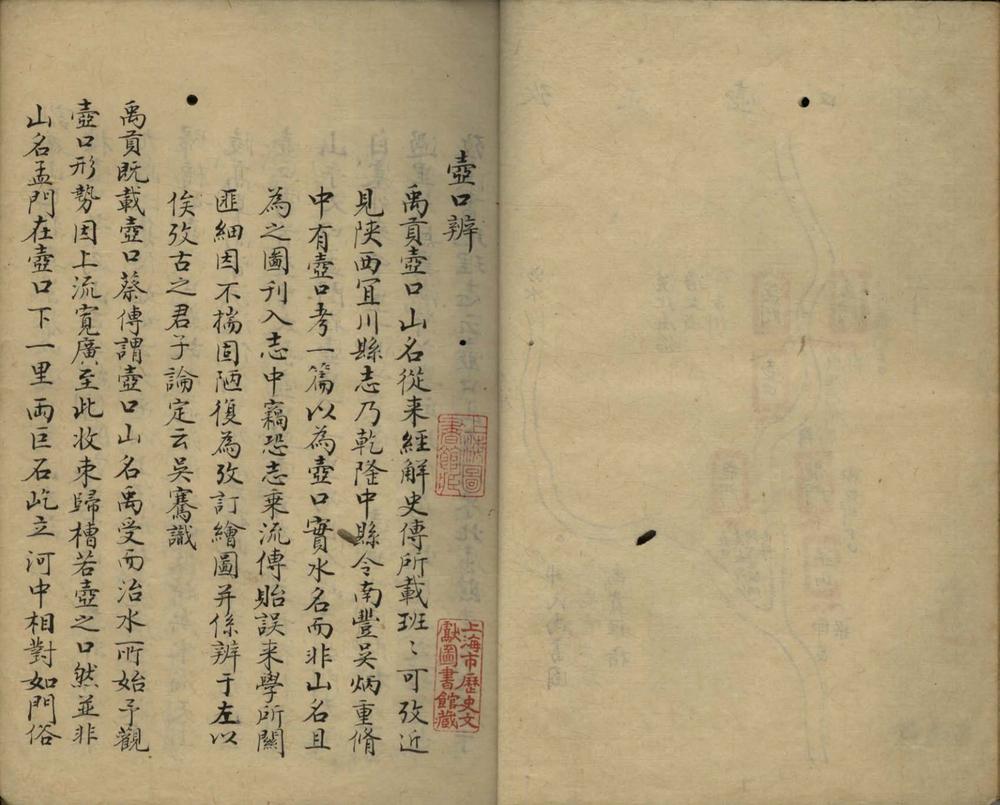 壺口辨
禹貢壺口山名從来經解史傳所載班〻可攷近
見陕西冝川縣志乃乾隆中縣令南豐吴炳重脩
中有壺口考一篇以為壺口實水名而非山名且
為之圖刊入志中竊恐志乘流傳貽誤来學所關
匪細因不揣固陋復為攷訂繪圖并係辨于左以
俟攷古之君子論定云吴騫識
禹貢既載壺口蔡傳謂壺口山名禹受而治水所始予觀
壺口形勢因上流寛廣至此收束歸槽若壺之口然並非
山名孟門在壺口下一里兩巨石屹立河中相對如門俗
上海圖
書館藏
上海市歷史文
獻圖書館藏